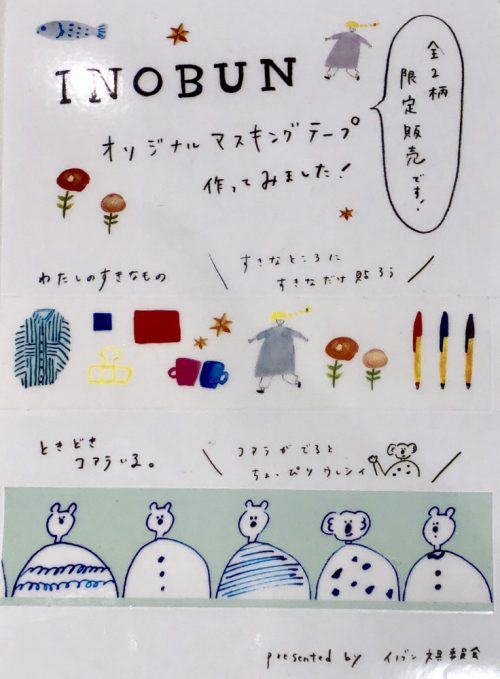 INOBUN
オリジナルマスキングテープ
作ってみました!
全2柄
限定販売です!
わたしのすきなもの
すきなところに
すきなだけ貼ろう
ときどき
コアラいる。
コアラがでると
ちょっぴりウレシイ
presented by イノブン文具委員会